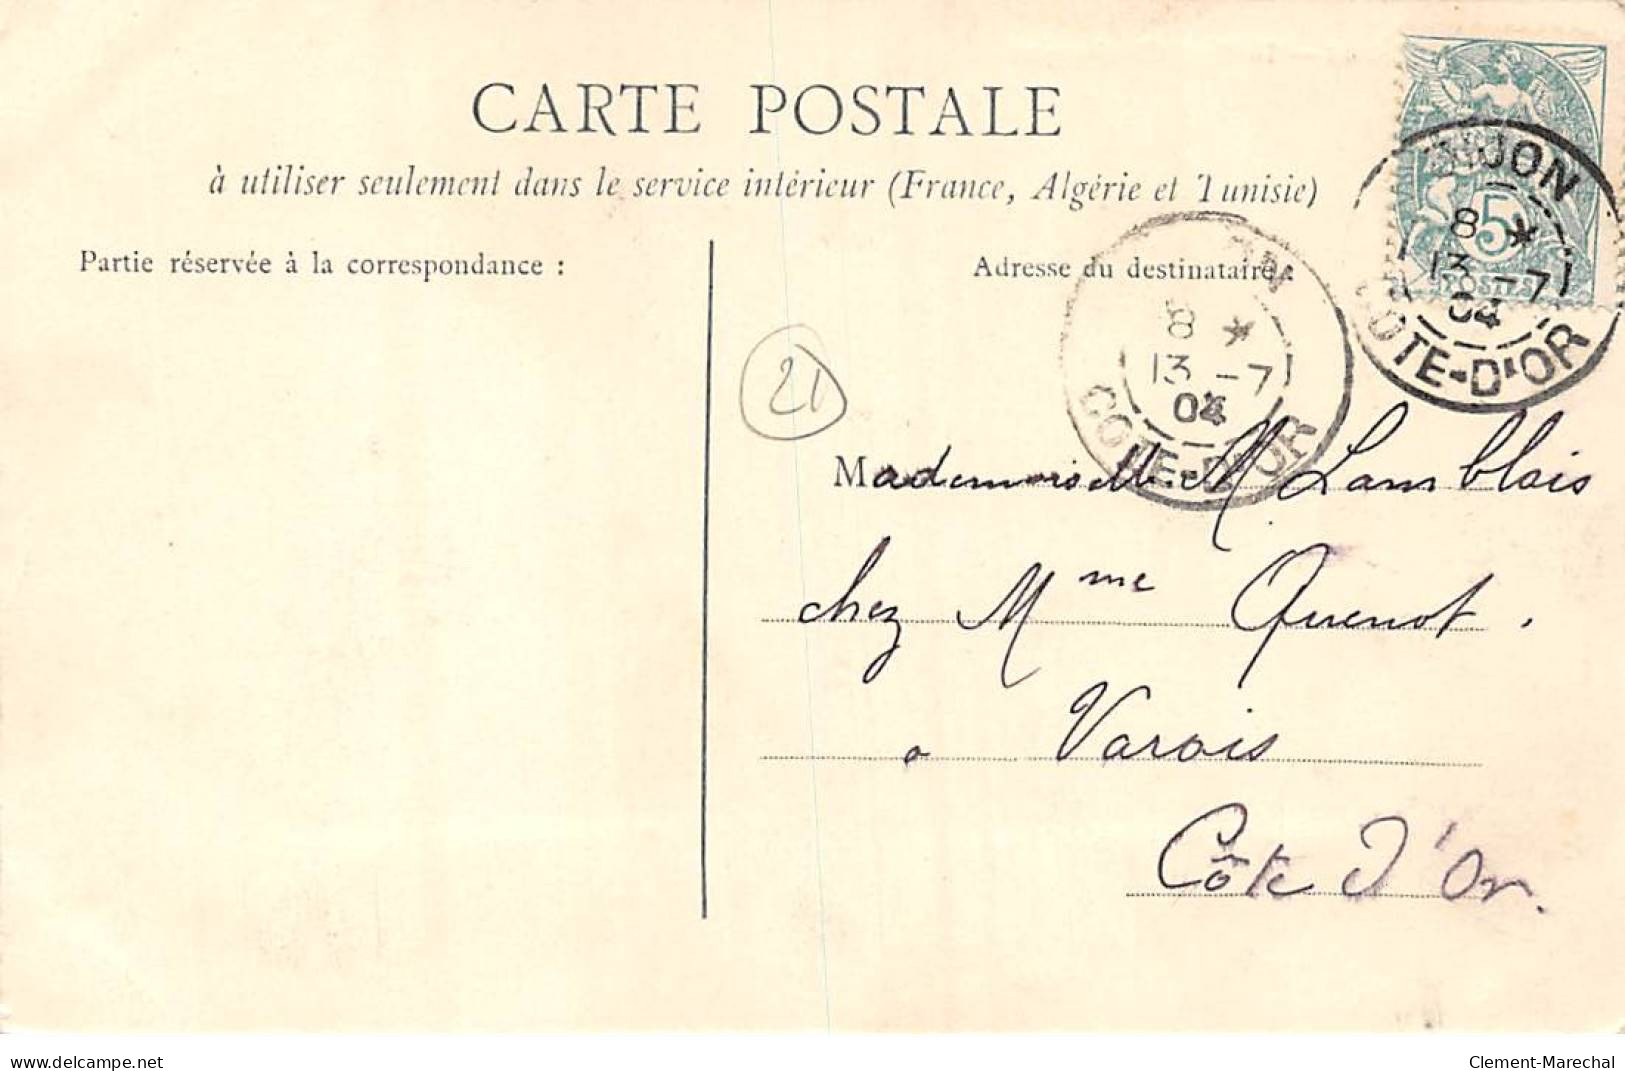 CARTE POSTALE
à utiliser seulement dans le service intérieur (France, Algérie et Tunisie)
Partie réservée à la correspondance :
Adresse du destinataire :
5
POSTES
DIJON
8 *
13 -7
04
COTE-D'OR
8 *
13 -7
04
COTE-D'OR
21
Mademoiselle M Lamblois
chez Mme Quenot.
à Varois
Côte d'Or.
delcampe.net
Clement-Marechal